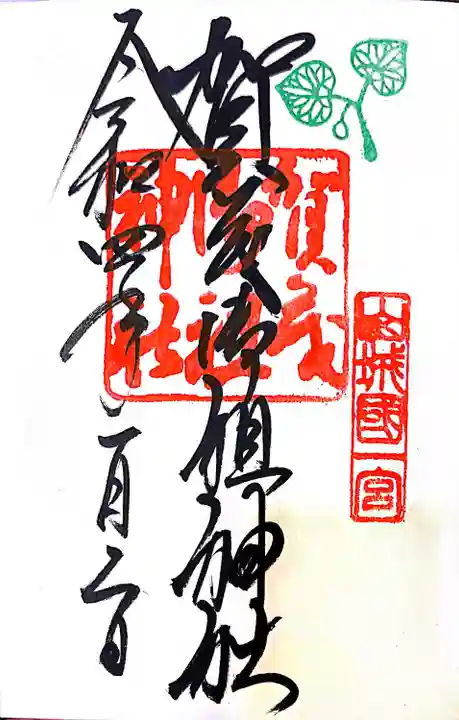 山城國一宮
賀茂御祖神社
賀茂御祖神社
令和四年二月二日